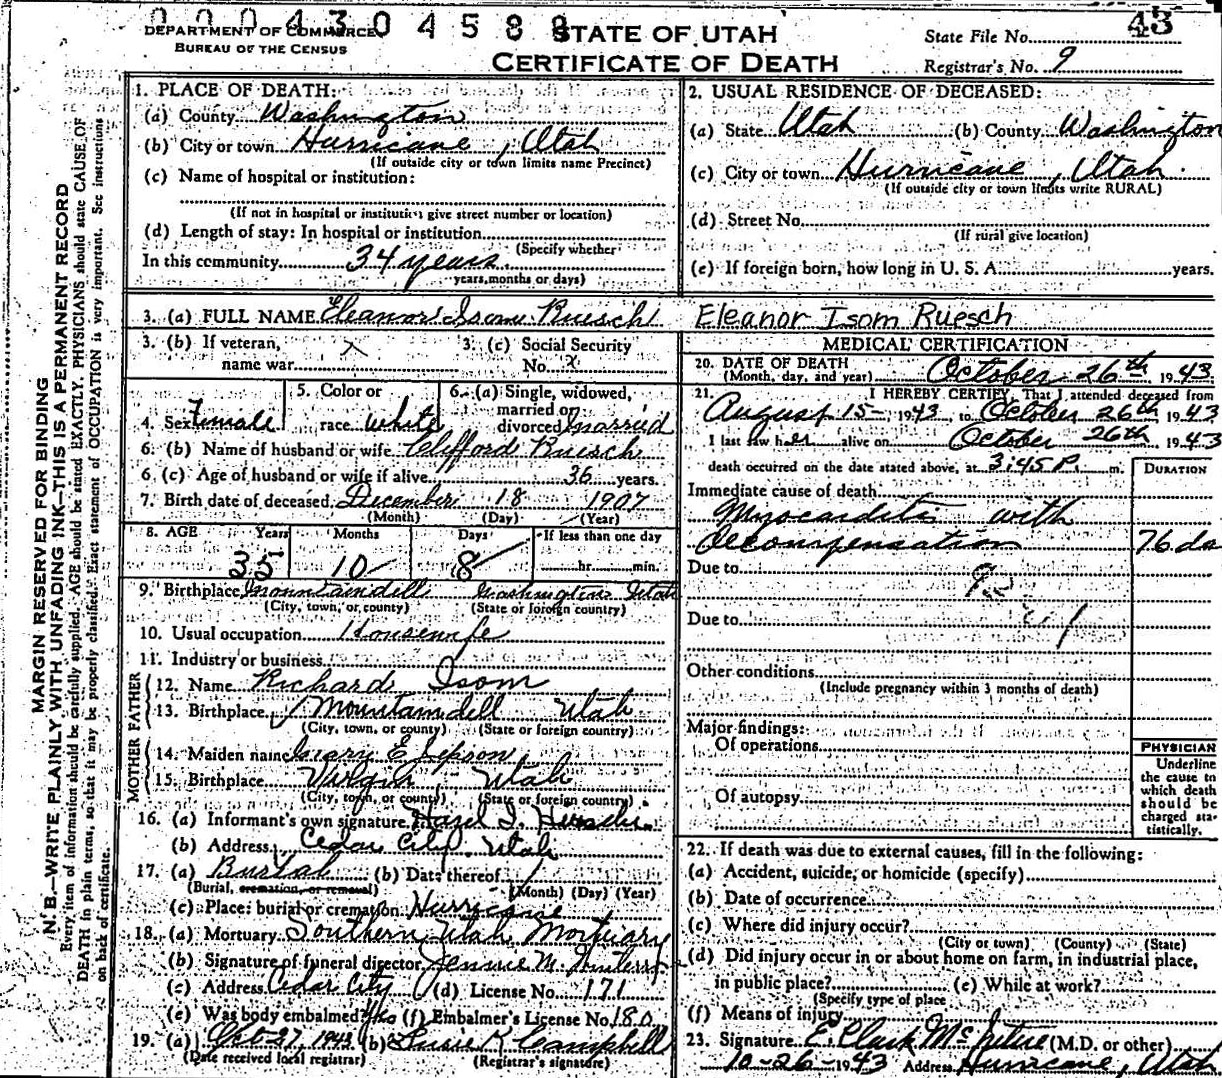 0004304588
43
DEPARTMENT OF COMMERCE
BUREAU OF THE CENSUS
STATE OF UTAH
CERTIFICATE OF DEATH
State File No.
Registrar's No. 9
MARGIN RESERVED FOR BINDING
N. B.—WRITE PLAINLY WITH UNFADING INK—THIS IS A PERMANENT RECORD
Every item of information should be carefully supplied. AGE should be stated EXACTLY. PHYSICIANS should state CAUSE OF
DEATH in plain terms, so that it may be properly classified. Exact statement of OCCUPATION is very important. See instructions
on back of certificate.
1. PLACE OF DEATH:
(a) County Washington
(b) City or town Hurricane, Utah
(If outside city or town limits name Precinct)
(c) Name of hospital or institution:
(If not in hospital or institution give street number or location)
(d) Length of stay: In hospital or institution
(Specify whether
In this community 34 years
years, months or days)
2. USUAL RESIDENCE OF DECEASED:
(a) State Utah (b) County Washington
(c) City or town Hurricane, Utah.
(If outside city or town limits write RURAL)
(d) Street No.
(If rural give location)
(e) If foreign born, how long in U. S. A. years.
3. (a) FULL NAME Eleanor Isom Ruesch Eleanor Isom Ruesch
3. (b) If veteran, name war x
3. (c) Social Security No. x
4. Sex Female
5. Color or race White
6. (a) Single, widowed, married or divorced Married
6. (b) Name of husband or wife Clifford Ruesch
6. (c) Age of husband or wife if alive 36 years.
7. Birth date of deceased December 18 1907
(Month) (Day) (Year)
8. AGE Years Months Days If less than one day
35 10 8 hr. min.
9. Birthplace Mountaindell Washington Utah
(City, town, or county) (State or foreign country)
10. Usual occupation Housewife
11. Industry or business
FATHER
12. Name Richard Isom
13. Birthplace Mountaindell Utah
(City, town, or county) (State or foreign country)
MOTHER
14. Maiden name Mary E Jepson
15. Birthplace Virgin Utah
(City, town, or county) (State or foreign country)
16. (a) Informant's own signature Hazel I.
(b) Address Cedar City, Utah
17. (a) Burial (b) Date thereof
(Burial, cremation, or removal) (Month) (Day) (Year)
(c) Place: burial or cremation Hurricane
18. (a) Mortuary Southern Utah Mortuary
(b) Signature of funeral director Jennie M.
(c) Address Cedar City (d) License No. 171
(e) Was body embalmed? (f) Embalmer's License No. 180
19. (a) Oct 27, 1943 (b) Susie K Campbell
(Date received local registrar) (Registrar's signature)
MEDICAL CERTIFICATION
20. DATE OF DEATH
(Month, day, and year) October 26th, 1943.
21. I HEREBY CERTIFY, That I attended deceased from
August 15- 1943 to October 26th 1943
I last saw her alive on October 26th, 1943
death occurred on the date stated above, at 3:45 P. m.
DURATION
Immediate cause of death
Myocarditis with
decompensation 76 da
Due to
Due to
Other conditions
(Include pregnancy within 3 months of death)
Major findings:
Of operations
Of autopsy
PHYSICIAN
Underline
the cause to
which death
should be
charged sta-
tistically.
22. If death was due to external causes, fill in the following:
(a) Accident, suicide, or homicide (specify)
(b) Date of occurrence
(c) Where did injury occur?
(City or town) (County) (State)
(d) Did injury occur in or about home on farm, in industrial place,
in public place? (e) While at work?
(Specify type of place
(f) Means of injury
23. Signature E. Clark McIntire (M.D. or other)
10-26-1943 Address Hurricane, Utah